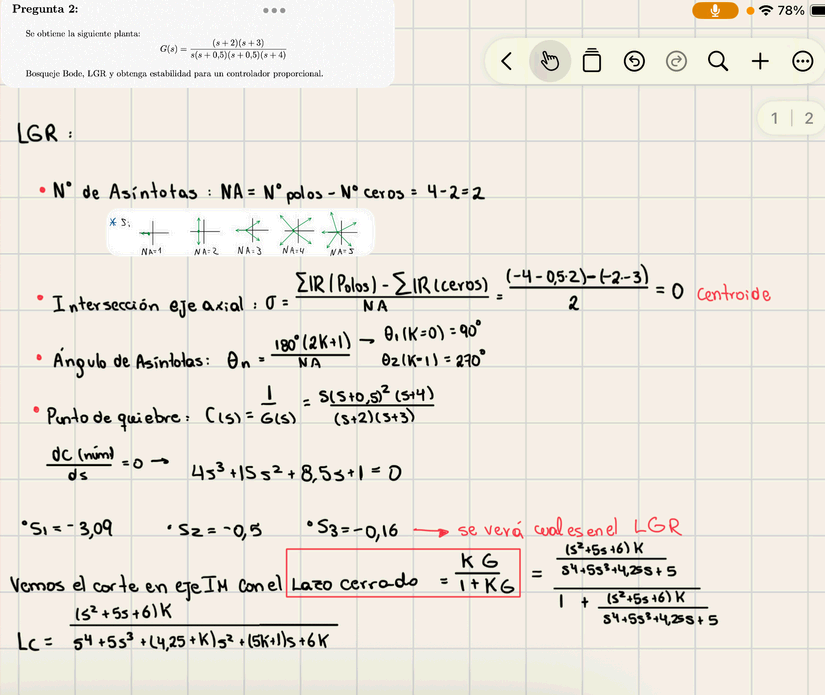 Pregunta 2:
78%
Se obtiene la siguiente planta:
G(s) = (s + 2)(s + 3) / s(s + 0,5)(s + 0,5)(s + 4)
Bosqueje Bode, LGR y obtenga estabilidad para un controlador proporcional.
1 | 2
LGR :
• N° de Asíntotas : NA = N° polos - N° ceros = 4-2=2
* Si
NA=1 NA=2 NA=3 NA=4 NA=5
• Intersección eje axial : σ = ΣIR(Polos) - ΣIR(ceros) / NA = (-4-0,5·2)-(-2--3) / 2 = 0 centroide
• Ángulo de Asíntotas: θn = 180°(2K+1) / NA → θ1(K=0)=90°
θ2(K=1)=270°
• Punto de quiebre: C(s) = 1 / G(s) = S(S+0,5)² (S+4) / (S+2)(S+3)
dC (núm) / ds = 0 → 4s³+15s²+8,5s+1=0
°S1=-3,09 •S2=-0,5 °S3=-0,16 → se verá cual es en el LGR
Vemos el corte en eje IM con el Lazo cerrado = KG / 1+KG = (s²+5s+6)K / s4+5s³+4,25s+5 / 1 + (s²+5s+6)K / s4+5s³+4,25s+5
Lc = (s²+5s+6)K / s4+5s³+(4,25+K)s²+(5K+1)s+6K